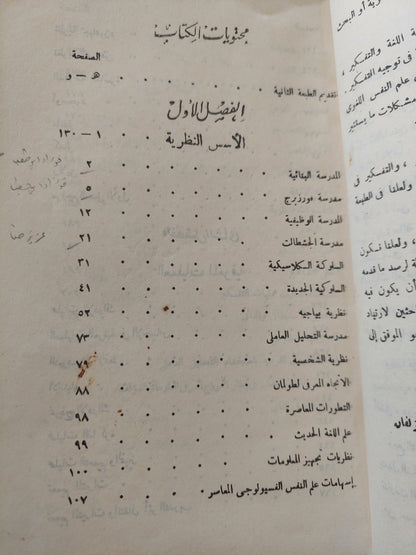 محتويات الكتاب
الصفحة
تقديم الطبعة الثانية . . . . . . ه - و
الفصل الأول
الأسس النظرية . . . . ١ - ١٣٠
المدرسة البنائية . . . . . ٢
مدرسة فورزبرج . . . . . ٥
المدرسة الوظيفية . . . . . ١٢
مدرسة الجشطالت . . . . . ٢١
عزيز حنا
السلوكية الكلاسيكية . . . . . ٣١
السلوكية الجديدة . . . . . ٤١
نظرية بياجيه . . . . . ٥٢
مدرسة التحليل العاملي . . . . . ٧٣
نظرية الشخصية . . . . . ٧٩
الاتجاه المعرفي لطولمان . . . . . ٨٨
التطورات المعاصرة . . . . . ٩٨
علم اللغة الحديث . . . . . ٩٩
نظريات تجهيز المعلومات . . . . .
إسهامات علم النفس الفسيولوجي المعاصر . . ١٠٧
ة اللغة والتفكير ،
فى توجيه التفكير
علم النفس اللغوى
مشكلات ما يستثير
، والتفكير فى
ولعلنا فى الطبعة
، ولعلنا نكون
لرصد ما قدمه
أن يكون فيه
حثين لارتياد
هو الموفق إلى